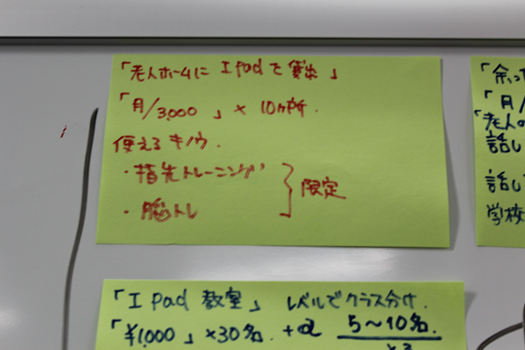 「老人ホームに Ipadを貸出」
「月/3,000」× 10ヶ所.
使えるキノウ.
・指先トレーニング
・脳トレ
限定
「Ipad 教室」 レベルでクラス分け.
「¥1,000」×30名. +α 5〜10名.
×3
「余っ
「月/
「老人の
話し
話し
学校